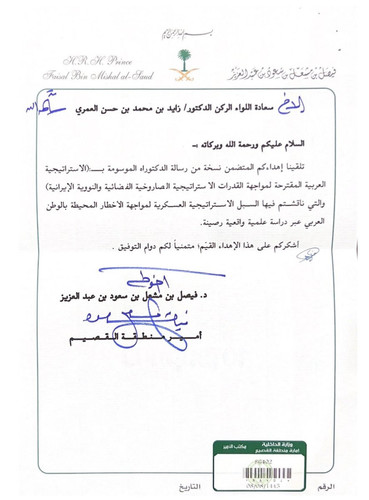 بسم الله الرحمن الرحيم
H.R.H. Prince
Faisal Bin Mishal al-Saud
فيصل بن مشعل بن سعود بن عبد العزيز
الأخ سعادة اللواء الركن الدكتور/ زايد بن محمد بن حسن العمري سلمه الله
السلام عليكم ورحمة الله وبركاته :-
تلقينا إهداءكم المتضمن نسخة من رسالة الدكتوراه الموسومة بـ(الاستراتيجية
العربية المقترحة لمواجهة القدرات الاستراتيجية الصاروخية الفضائية والنووية الإيرانية)
والتي ناقشتم فيها السبل الاستراتيجية العسكرية لمواجهة الأخطار المحيطة بالوطن
العربي عبر دراسة علمية واقعية رصينة.
أشكركم على هذا الإهداء القيّم؛ متمنياً لكم دوام التوفيق .
أخوكم
د. فيصل بن مشعل بن سعود بن عبد العزيز
أمير منطقة القصيم
وزارة الداخلية
امارة منطقة القصيم
مكتب الامير
الرقم
التاريخ